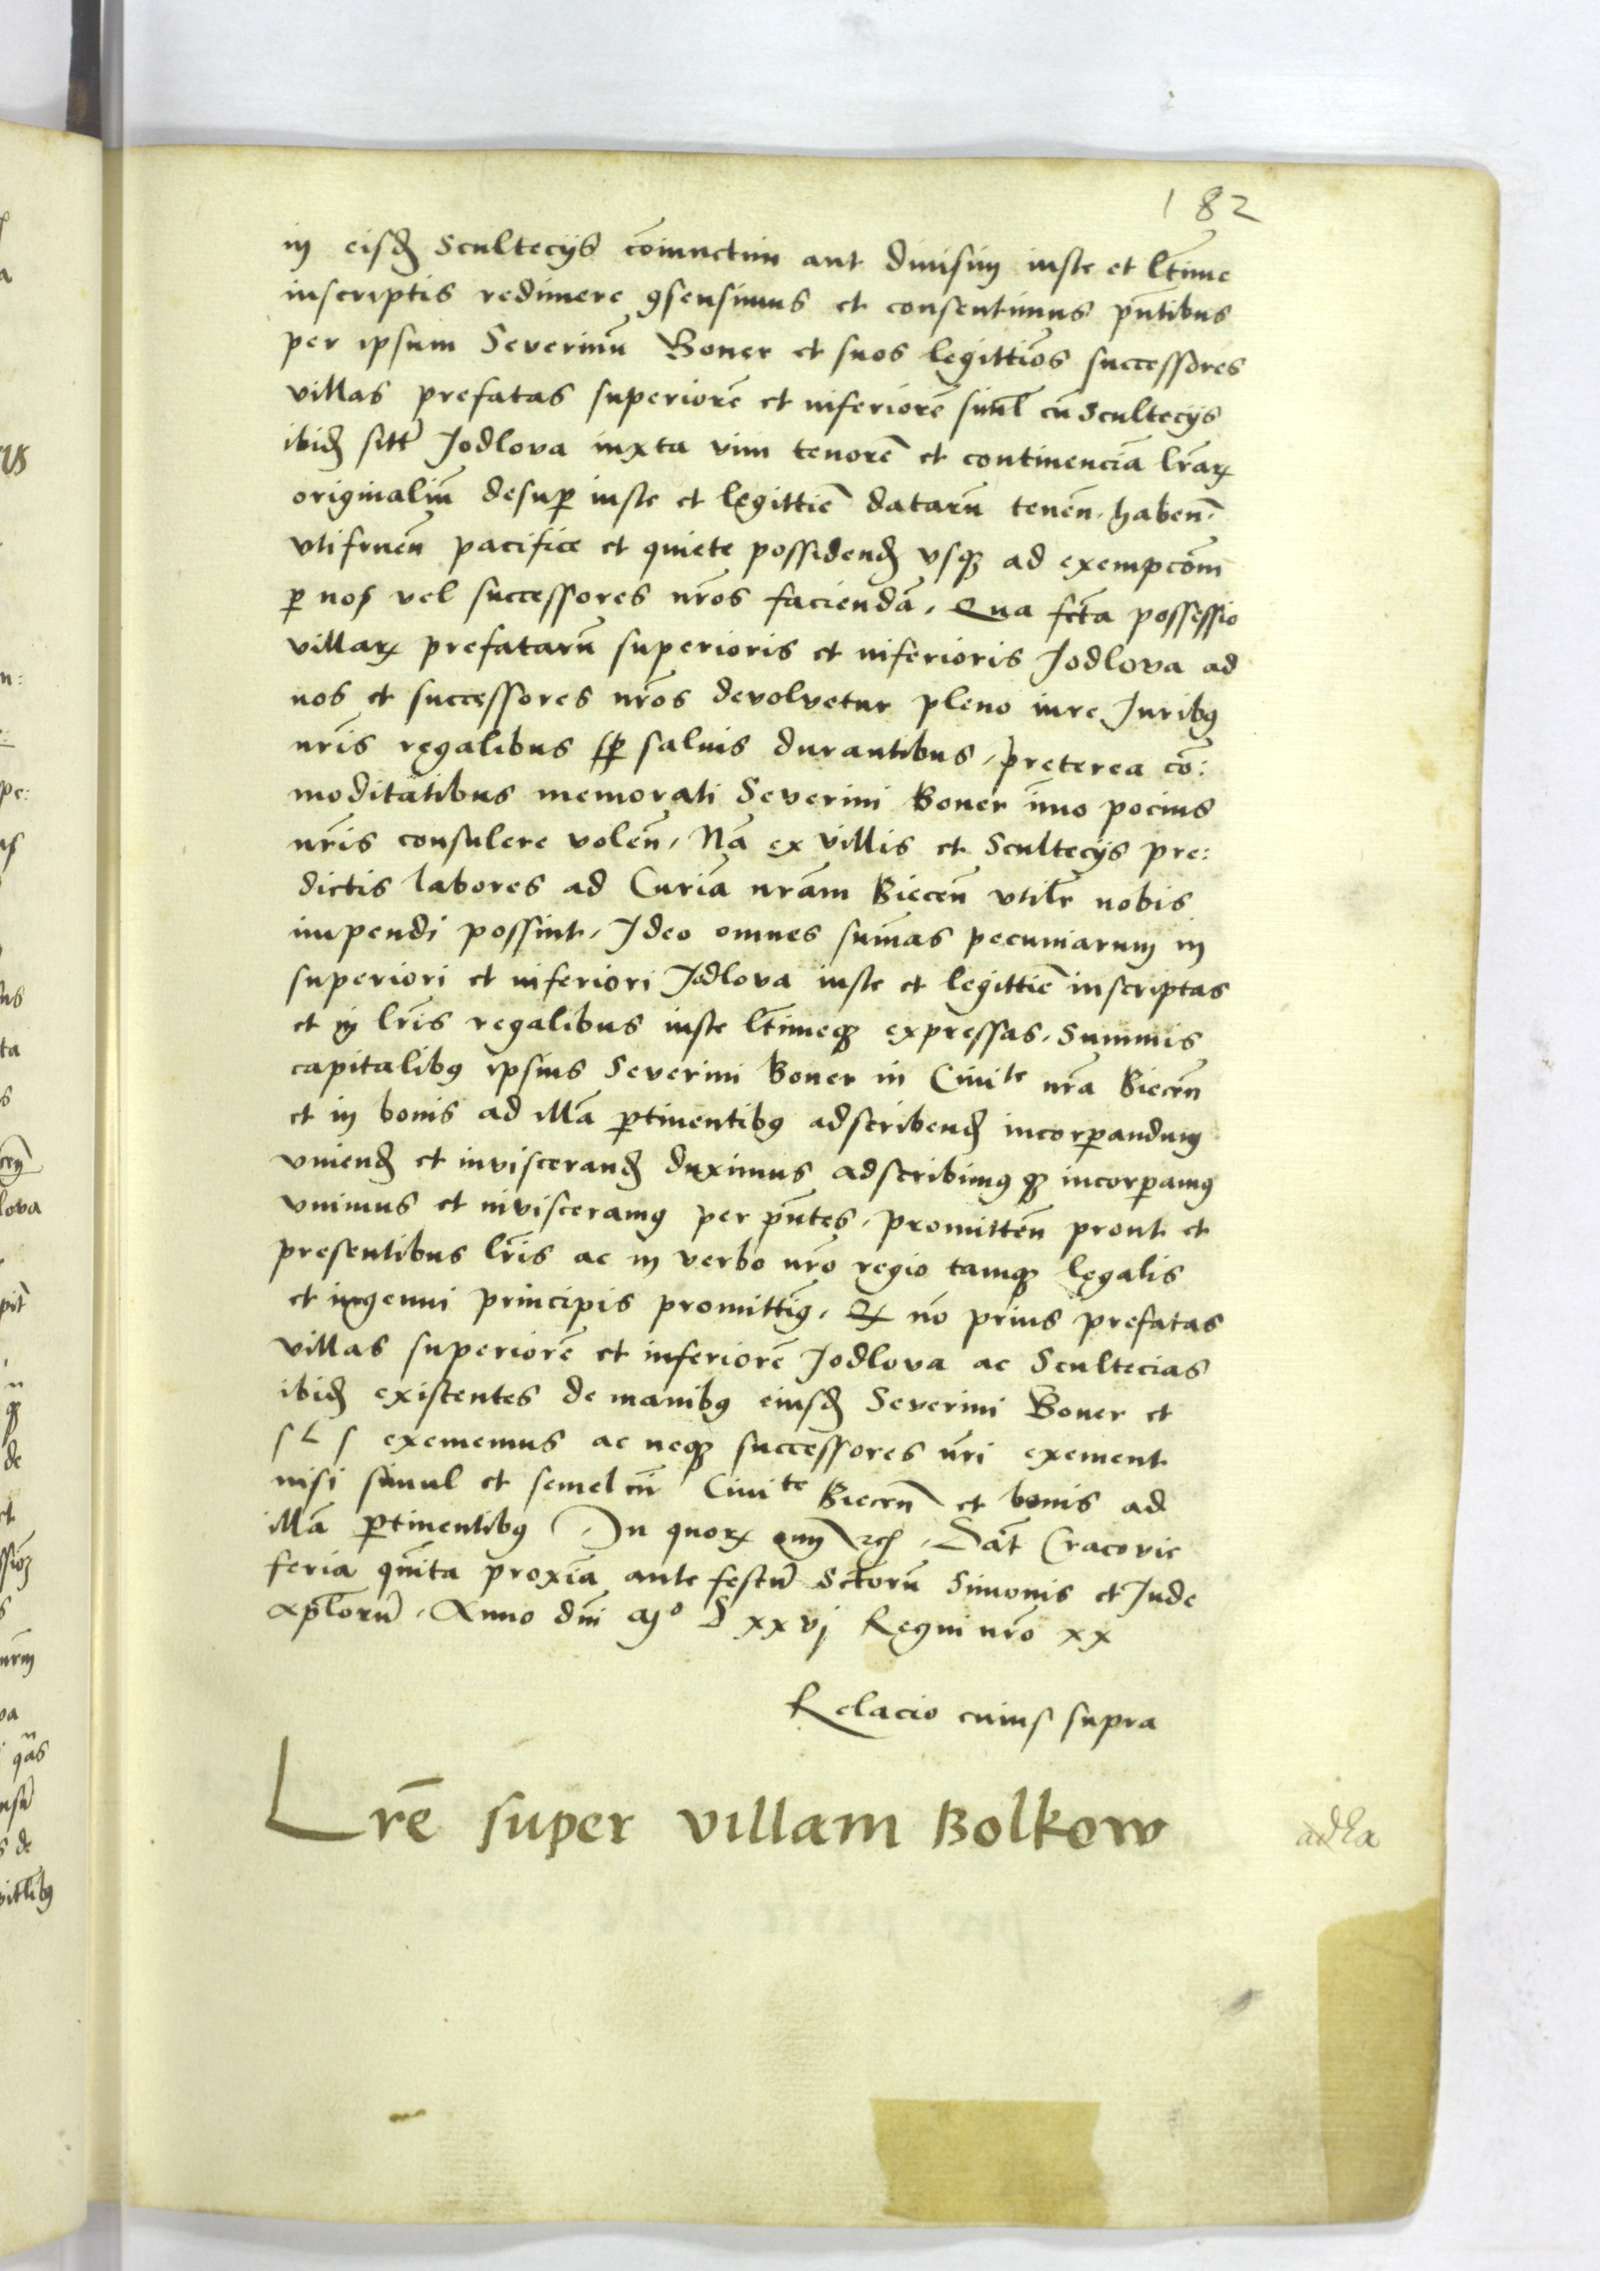 182
in eisd Scultecijs cōiunctim aut diuisim iuste et ltīme
inscriptis redimere ꝯsensimus et consentimus pn̄tibus
per ipsum Severinū Boner et suos legittīos successores
villas prefatas superiorē et inferiorē simł cū Scultecijs
ibid sitt Jodlova iuxta vim tenorē et continenciā lr̄aꝝ
originaliū desuꝑ iuste et legittīe datarū tenēn. habeñ.
vtifruēn pacifice et quiete possidend vsqꝫ ad exempcōm
ꝑ nos vel successores nr̄os faciendā, Qua fcta possessio
villaꝝ prefatarū superioris et inferioris Jodlova ad
nos et successores nr̄os devolvetur pleno iure Juribꝰ
nr̄is regalibus sꝑ saluis durantibus, preterea cō:
moditatibus memorati Severini Boner ūno pocius
nr̄is consulere volēn, Nā ex villis et Scultecijs pre:
dictis labores ad Curiā nr̄am Biecēn vtilr nobis
impendi possint, Ideo omnes sum̄as pecuniarum in
superiori et inferiori Jodlova iuste et legittīe inscriptas
et in lr̄is regalibus iuste ltīmeqꝫ expressas, Summis
capitalibꝰ ipsius Severini Boner in Ciuiᵗᵉ nr̄a Biecēn
et in bonis ad illā ꝑtinentibꝰ adscribend incorꝑandum
vniend et inviscerand duximus adscribimꝰqꝫ incorꝑamꝰ
vnimus et invisceramꝰ per pn̄tes, promittēn prout et
presentibus lr̄is ac in verbo nr̄o regio tamqꝫ legalis
et ingenui principis promittīꝰ, Qꝫ nō prius prefatas
villas superiorē et inferiorē Jodlova ac Scultecias
ibid existentes de manibꝰ eiusd Severini Boner et
s L s exememus ac neqꝫ successores nr̄i exement
nisi simul et semel cū Ciuiᵗᵉ Biecēn et bonis ad
illā ꝑtinentibꝰ, In quoꝝ Dat Cracovie
feria quīta proxīa ante festū Sctorū Simonis et Jude
Aplorū, Anno dn̄i Mº D xxvj Regni nr̄o xx
Relacio cuius supra
Lrē super villam Bolkow